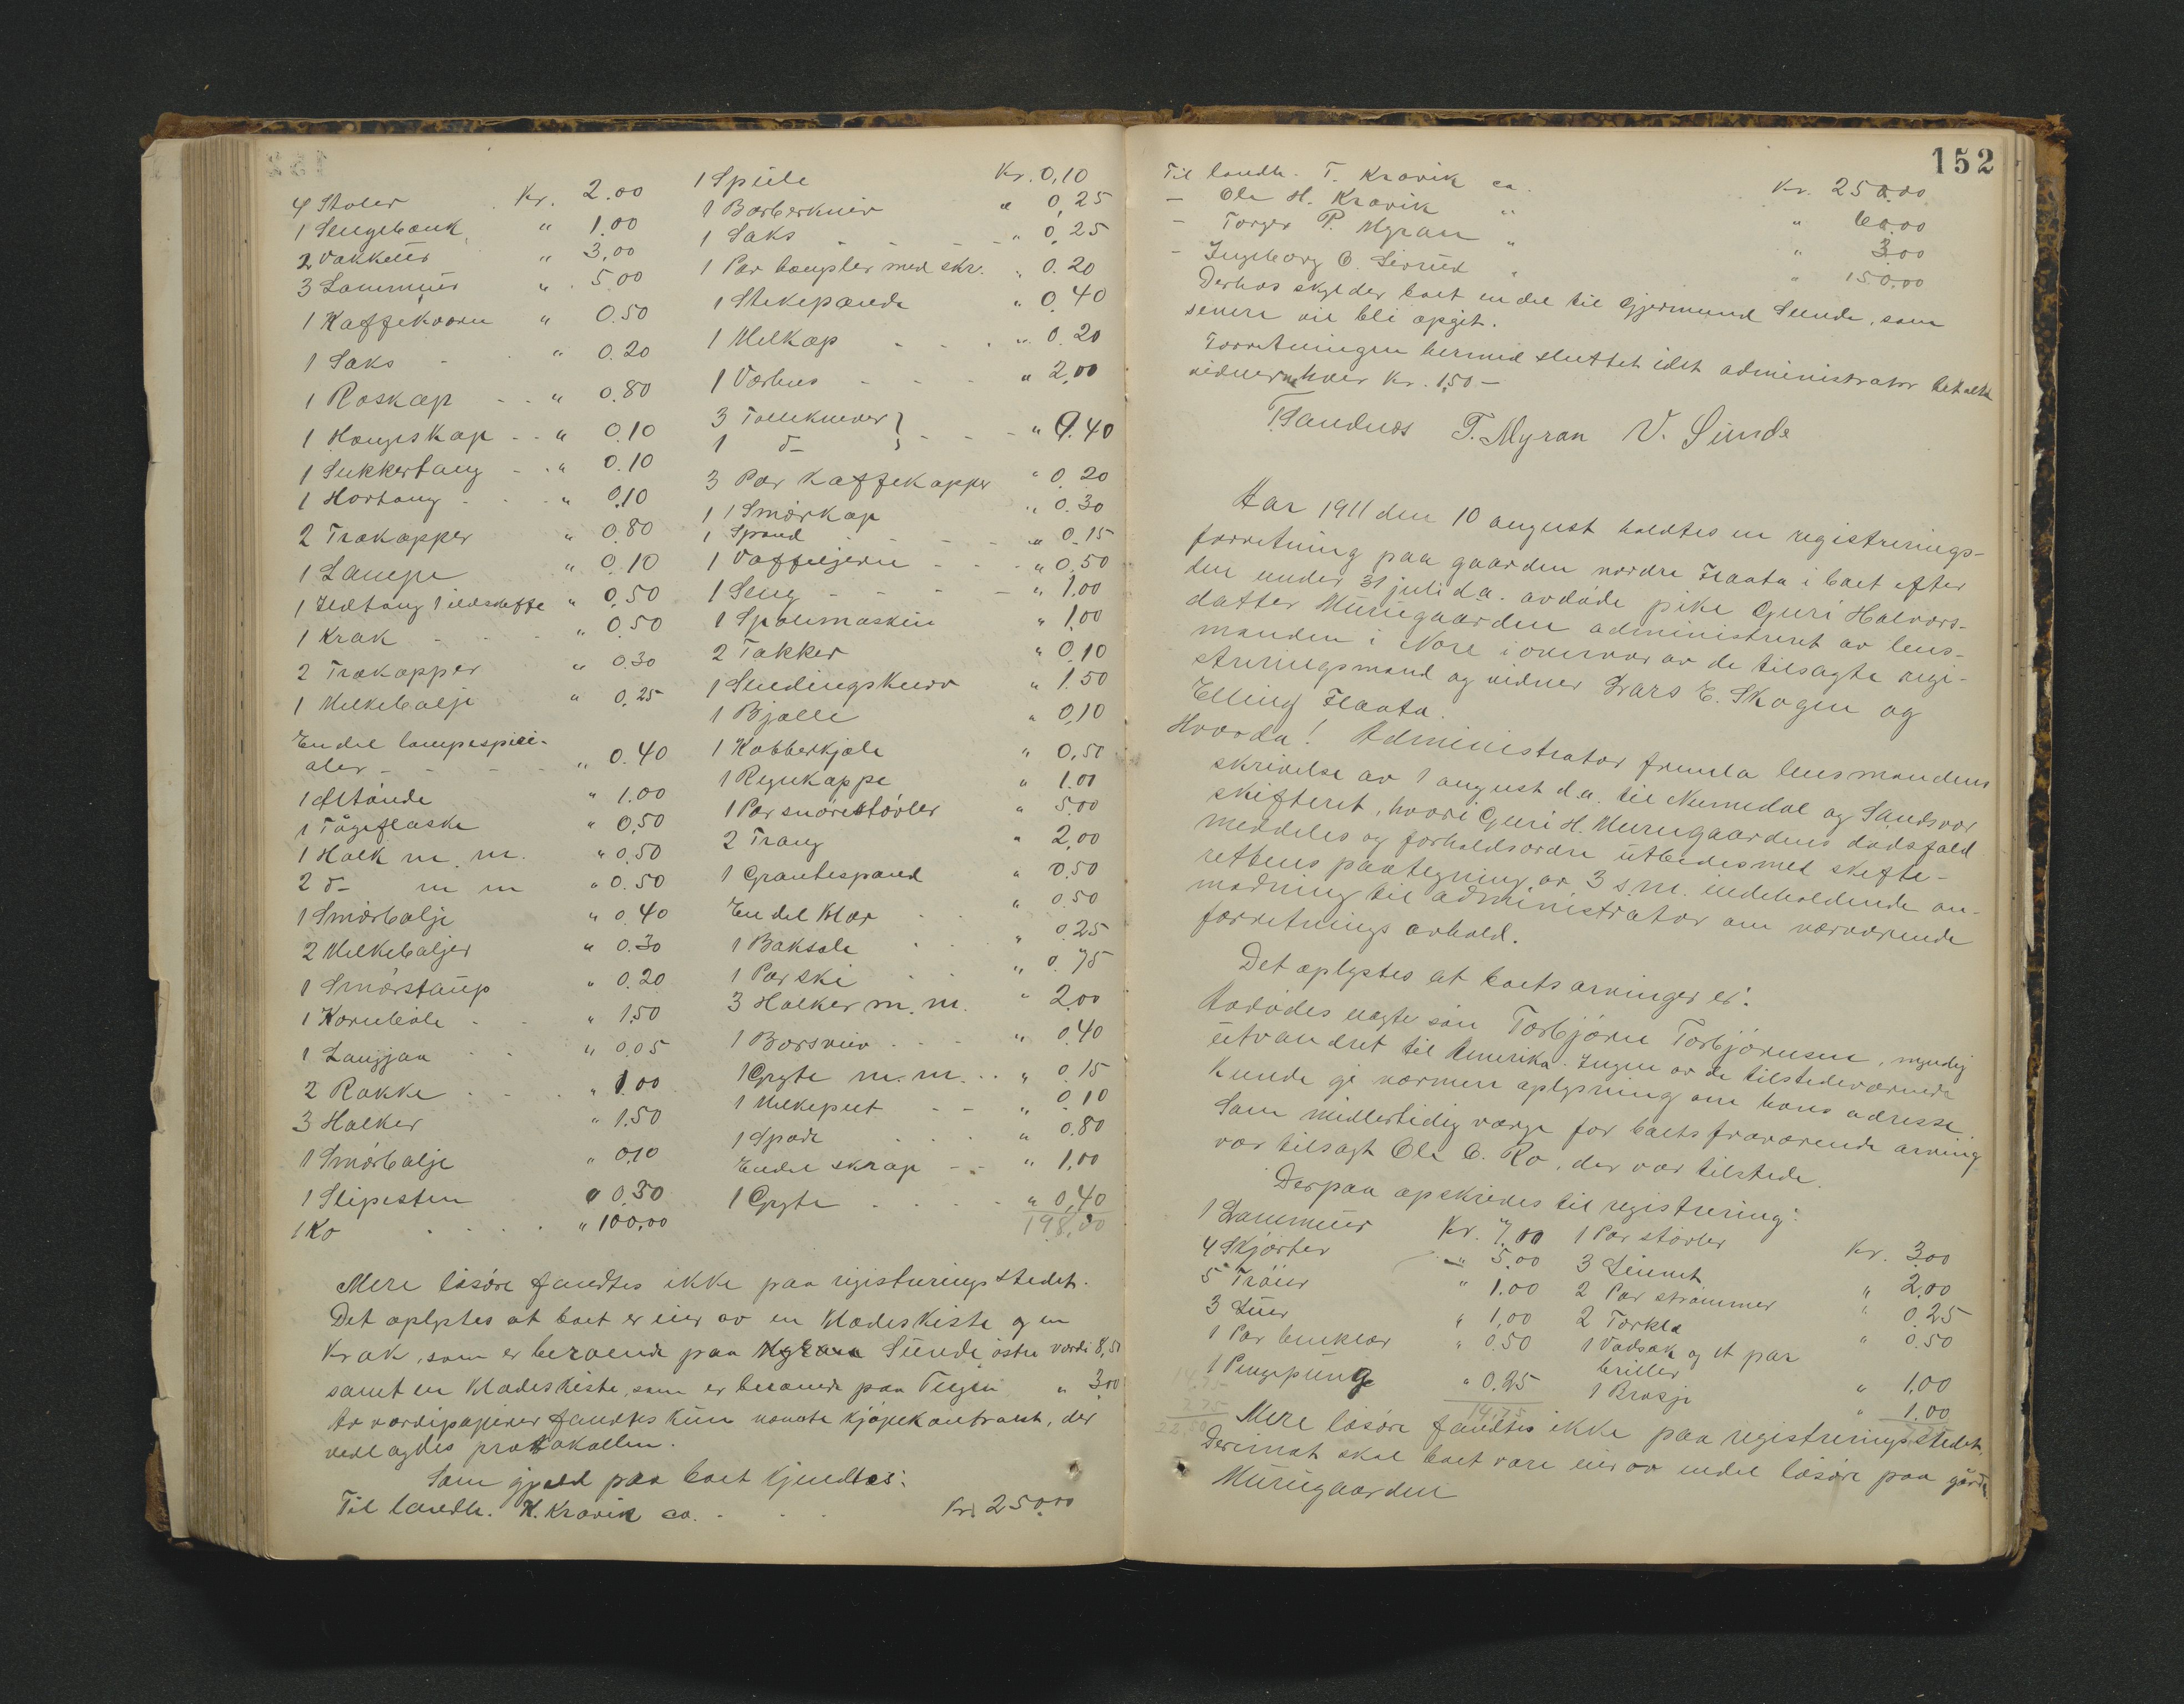 4 Stoler Kr. 2.00
1 Sengebænk " 1.00
2 Vækkeur " 3,00
3 Lommeur " 5.00
1 Kaffekværn " 0.50
1 Saks - " 0.20
1 Roskap - - " 0.80
1 Hængeskap - - " 0.10
1 Sukkertang - " 0.10
1 Hortang - - " 0,10
2 Trækopper " 0.80
1 Lampe " 0.10
1 Ildtang 1 ildskuffe " 0,50
1 Krak - - " 0.50
2 Trækopper " 0.30
1 Melkebalje " 0,25
En del lampespiri-
aler - - - " 0.40
1 Øltønde " 1.00
1 Tågeflaske " 0,50
1 Holk m. m. " 0.50
2 d- m m " 0.50
1 Smørbalje " 0.40
2 Melkebaljer " 0.30
1 Smørstaup " 0.20
1 Kornbøle - " 1,50
1 Langjaa - " 0.05
2 Rokke - - " 1.00
3 Holker " 1.50
1 Smørbalje " 0,10
1 Slipesten " 0.30
1 Ko - - - " 100.00
1 Speile Kr. 0,10
1 Barberkniv " 0,25
1 Saks - - - " 0,25
1 Par hægter med skr. " 0.20
1 Stekepande " 0.40
1 Melkop - - - " 0.20
1 Værhus - - - " 2,00
3 Tælleknever }
1 d- } - - - " 0.40
3 Par Kaffekopper " 0.20
1 1 Smørkop " 0.30
1 Spand - - - " 0.15
1 Vaffeljern - - - " 0,50
1 Seng - - - - " 1.00
1 Spolemaskin " 1,00
2 Takker " 0,10
1 Sendingskurv " 1.50
1 Bjælle " 0,10
1 Kobberkjele " 0,50
1 Regnkappe " 1.00
1 Par snørestøvler " 5.00
2 Traug " 2,00
1 Grautespand " 0.50
En del Klær - - " 0.50
1 Baksale - - " 0.25
1 Par ski - - " 0.75
3 Holker m. m. " 2.00
1 Børsvier - - - " 0.40
1 Gryte m. m. - - " 0.15
1 Melkeput - - " 0.10
1 Spade - - - " 0.80
Endel skrap - - " 1,00
1 Gryte - - - - " 0,40
198,00
Mere løsøre fandtes ikke paa registreringsstedet.
Det oplystes at boet er eier av en Klædeskiste og en
Krak, som er beroende paa Sünde østre værdi 8,50
samt en Klædeskiste, som er beroende paa Teigen " 3,00
Av værdipapirer fandtes kün nævnte kjøpekontrakt, der
vedlagdes protokollen.
Som gjæld paa boet kjendtes:
Til landh. K. Kravik ca. - - - Kr. 250.00
152
Til landh. T. Kravik ca. Kr. 250.00
- Ole H. Kravik " " 60.00
- Torger P. Myran " " 3.00
- Ingeborg O. Lirrud " " 150.00
Derhos skylder boet en del til Gjermund Sunde, som
senere vil bli opgit.
Forretningen hermed sluttet idet administrator betalte
vidnerne hver Kr. 1,50 -
T. Sandnæs T. Myran V. Sünde
Aar 1911 den 10 august holdtes en registrerings-
forretning paa gaarden nordre Flaata i boet efter
den under 31 juli d.a. avdøde pike Guri Halvors-
datter Mürügaarden administreret av lens-
manden i Nore i overvær av de tilsagte regi-
streringsmænd og vidner Lars E. Skogen og
Elling Flaata.
Hvorda! Administrator fremla lensmandens
skrivelse av 1 august d.a. til Numedal og Sandsvær
skifteret, hvori Guri H. Murugaardens dødsfald
meddeles og forholdsordre utbedes med skifte-
rettens paategning av 3 s.m. indeholdende an-
modning til administrator om nærværende
forretnings avhold.
Det oplystes at boets arvinger er:
Avdødes uegte søn Torbjørn Torbjørnsen, myndig
utvandret til Amerika. Ingen av de tilstedeværende
kunde gi nærmere oplysning om hans adresse.
Som midlertidig værge for boets fraværende arving
var tilsagt Ole O. Ro, der var tilstede.
Derpaa opskreves til registrering:
1 Lommeür Kr. 7,00 1 Par støvler Kr. 3.00
4 Skjorter - " 5.00 3 Linnet " 2.00
5 Trøier " 1.00 2 Par strømper " 0.25
3 Luer " 1,00 2 Tørkla " 0.50
1 Par benklær " 0.50 1 Vadsæk og et par
briller " 1,00
1 Pengepung " 0.25 1 Brosje " 1.00
14.75 7.75
14.75
7.75
22.50
Mere løsøre fandtes ikke paa registreringsstedet.
Derimot skal boet være eier av endel løsøre paa gården
Mürügaarden